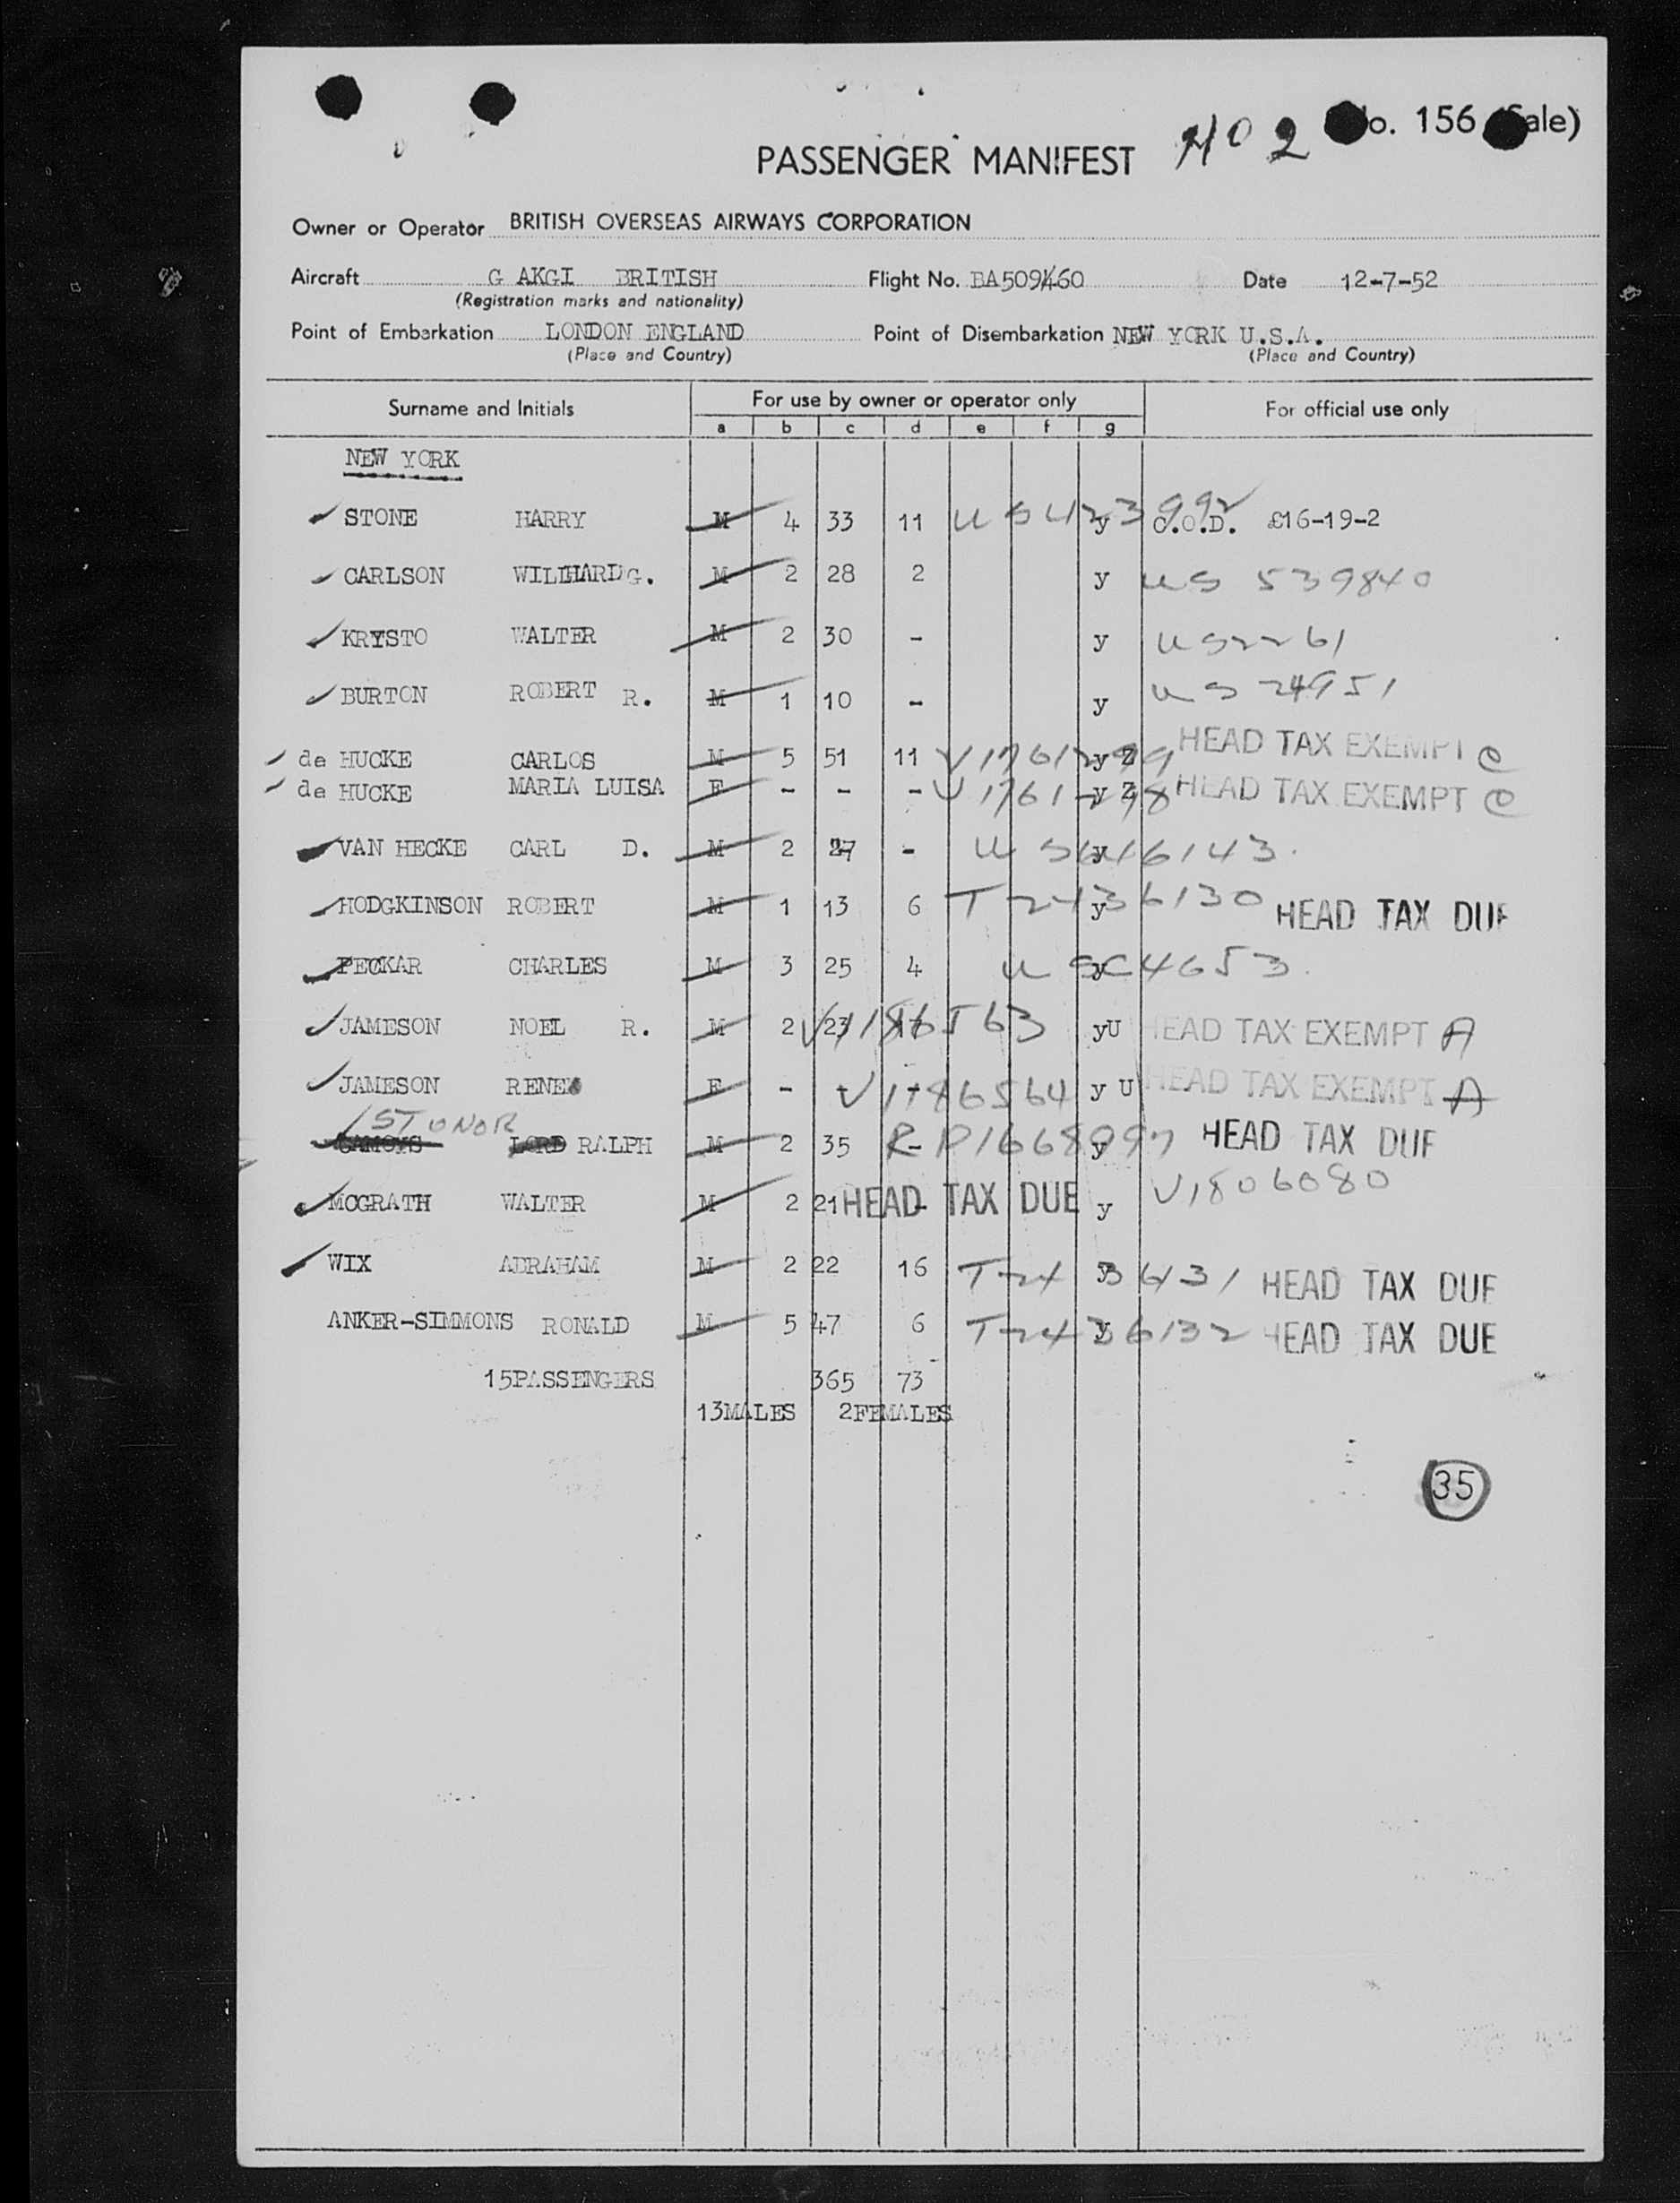 402
No. 156 (Sale)
PASSENGER MANIFEST
Owner or Operator BRITISH OVERSEAS AIRWAYS CORPORATION
Aircraft G AKGI BRITISH Flight No. BA509/460 Date 12-7-52
(Registration marks and nationality)
Point of Embarkation LONDON ENGLAND Point of Disembarkation NEW YORK U.S.A.
(Place and Country) (Place and Country)
Surname and Initials For use by owner or operator only For official use only
a b c d e f g
NEW YORK
STONE HARRY M 4 33 11 US423992 y C.O.D. £16-19-2
CARLSON G. M 2 28 2 y US 539840
KRYSTO WALTER M 2 30 - y US2261
BURTON ROBERT R. M 1 10 - y US 24951
de HUCKE CARLOS M 5 51 11 y Z HEAD TAX EXEMPT C
de HUCKE MARIA LUISA F - - - y Z HEAD TAX EXEMPT C
VAN HECKE CARL D. M 2 27 - y
HODGKINSON ROBERT M 1 13 6 T2436130 y HEAD TAX DUE
PECKAR CHARLES M 3 25 4 y
JAMESON NOEL R. M 2 23 17 V1186563 yU HEAD TAX EXEMPT A
JAMESON RENE F - - - V1186564 y U HEAD TAX EXEMPT A
STONOR
CAMOYS LORD RALPH M 2 35 - y HEAD TAX DUE
MCGRATH WALTER M 2 21 HEAD TAX DUE - y V1806080
WIX ABRAHAM M 2 22 16 T2436131 y HEAD TAX DUE
ANKER-SIMMONS RONALD M 5 47 6 T2436132 y HEAD TAX DUE
15PASSENGERS 365 73
13MALES 2FEMALES
35